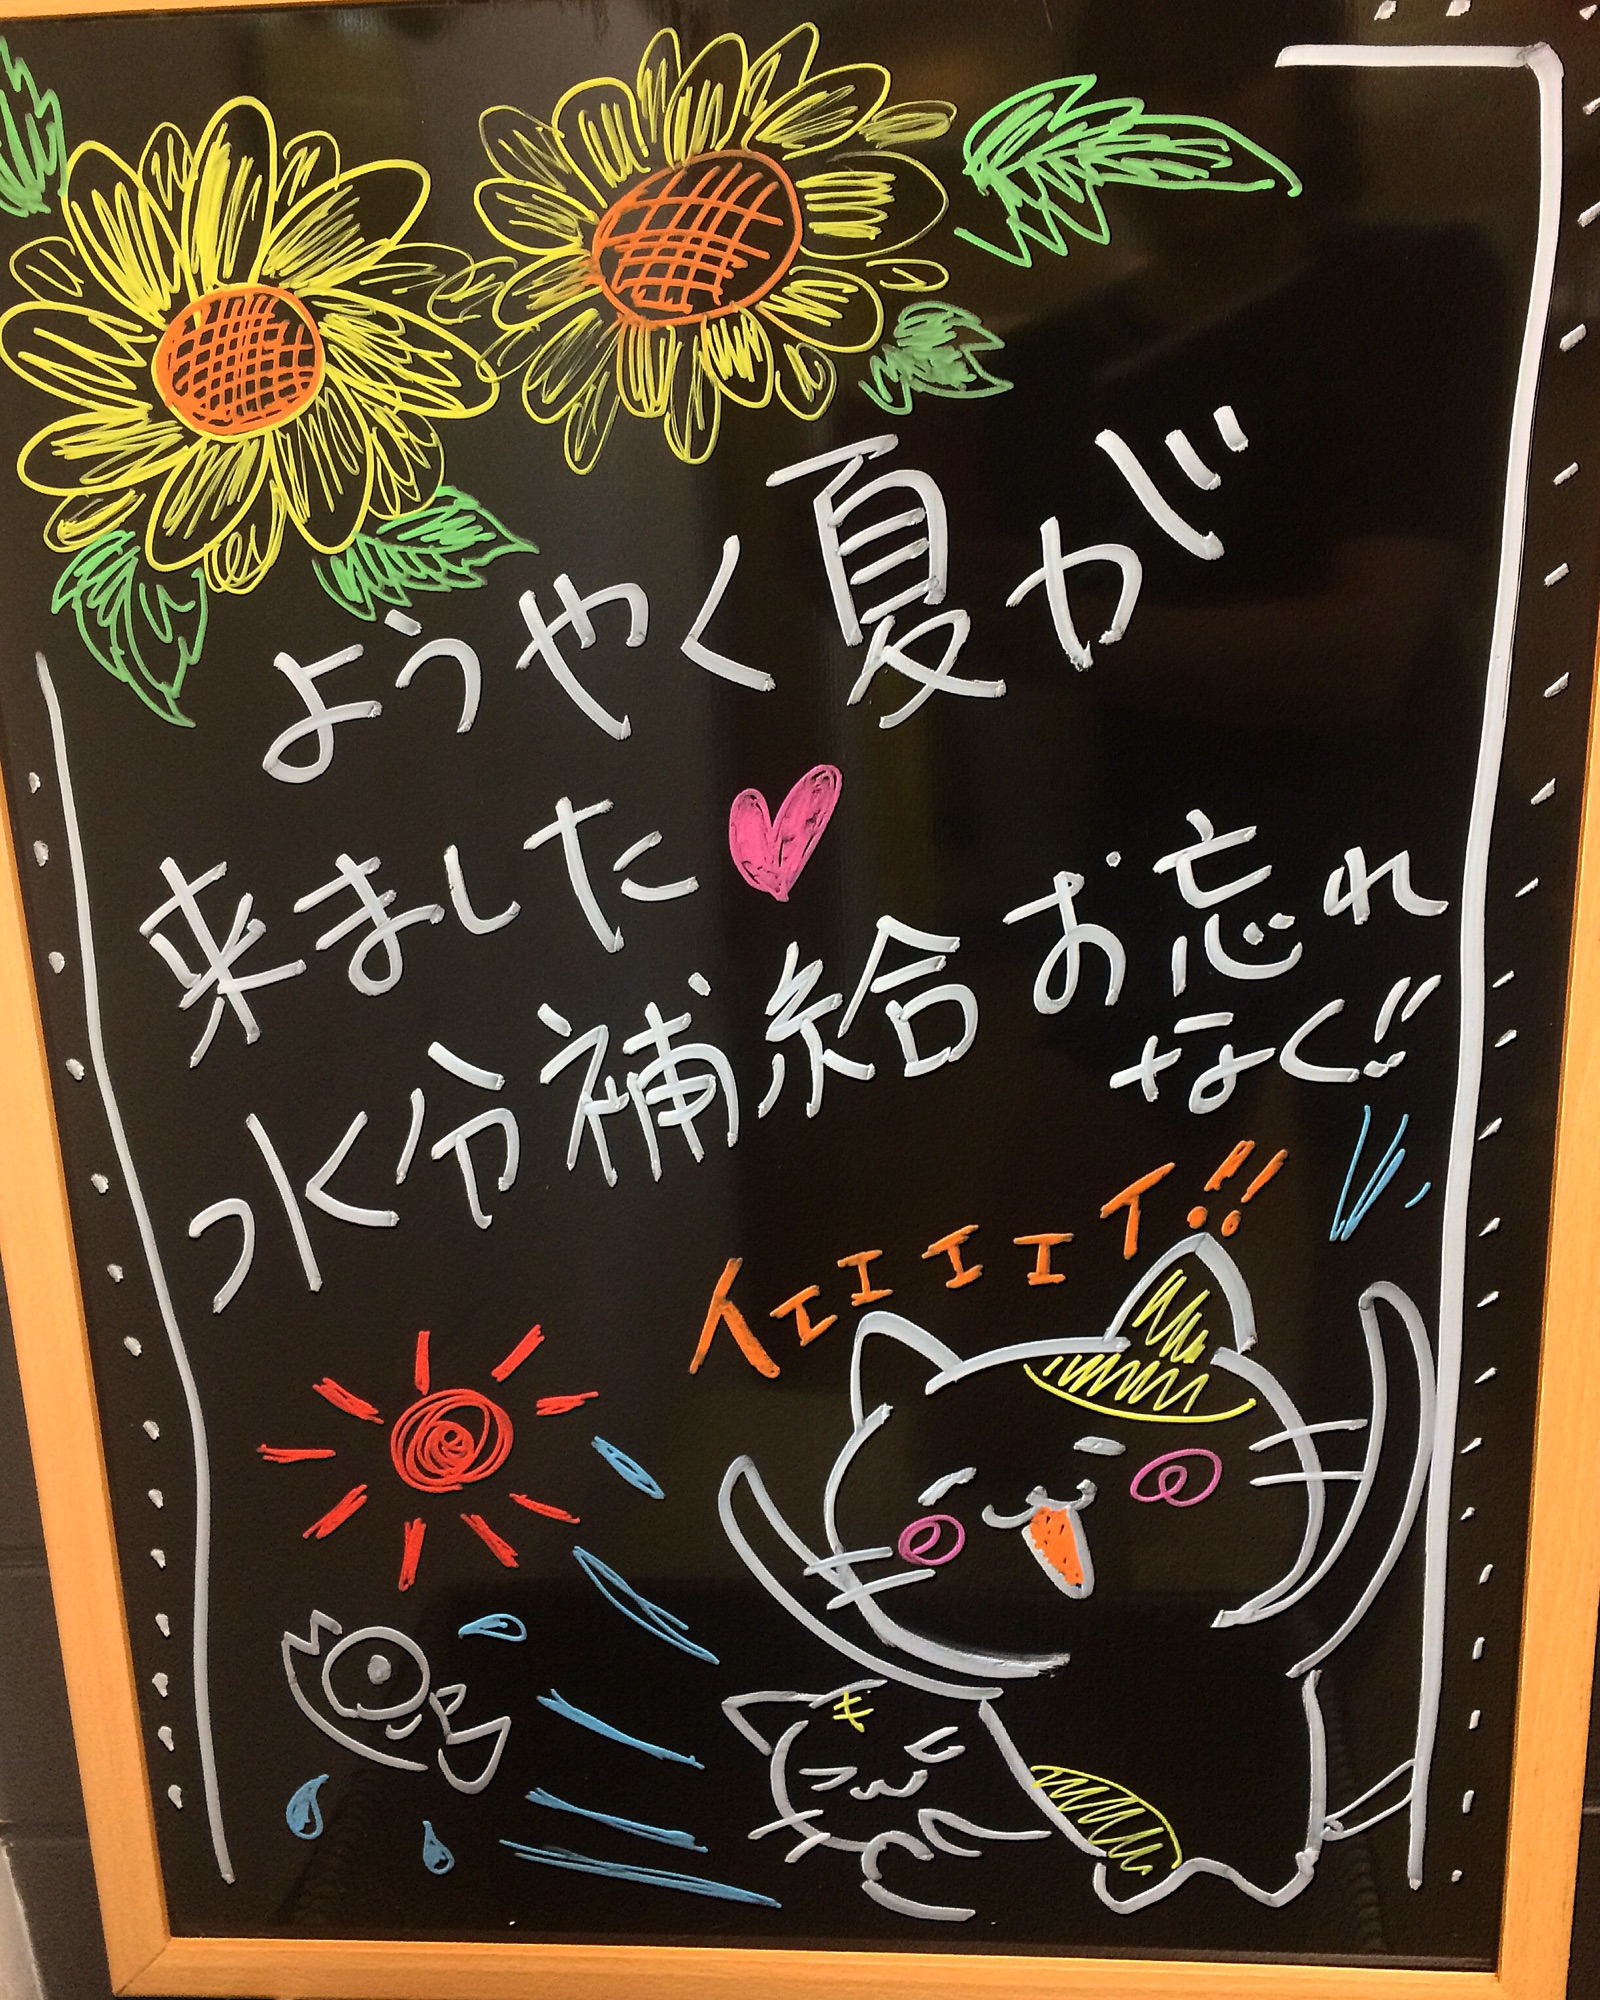 ようやく夏が
来ました♥
水分補給お忘れ
なく!!
イェエエエイ!!